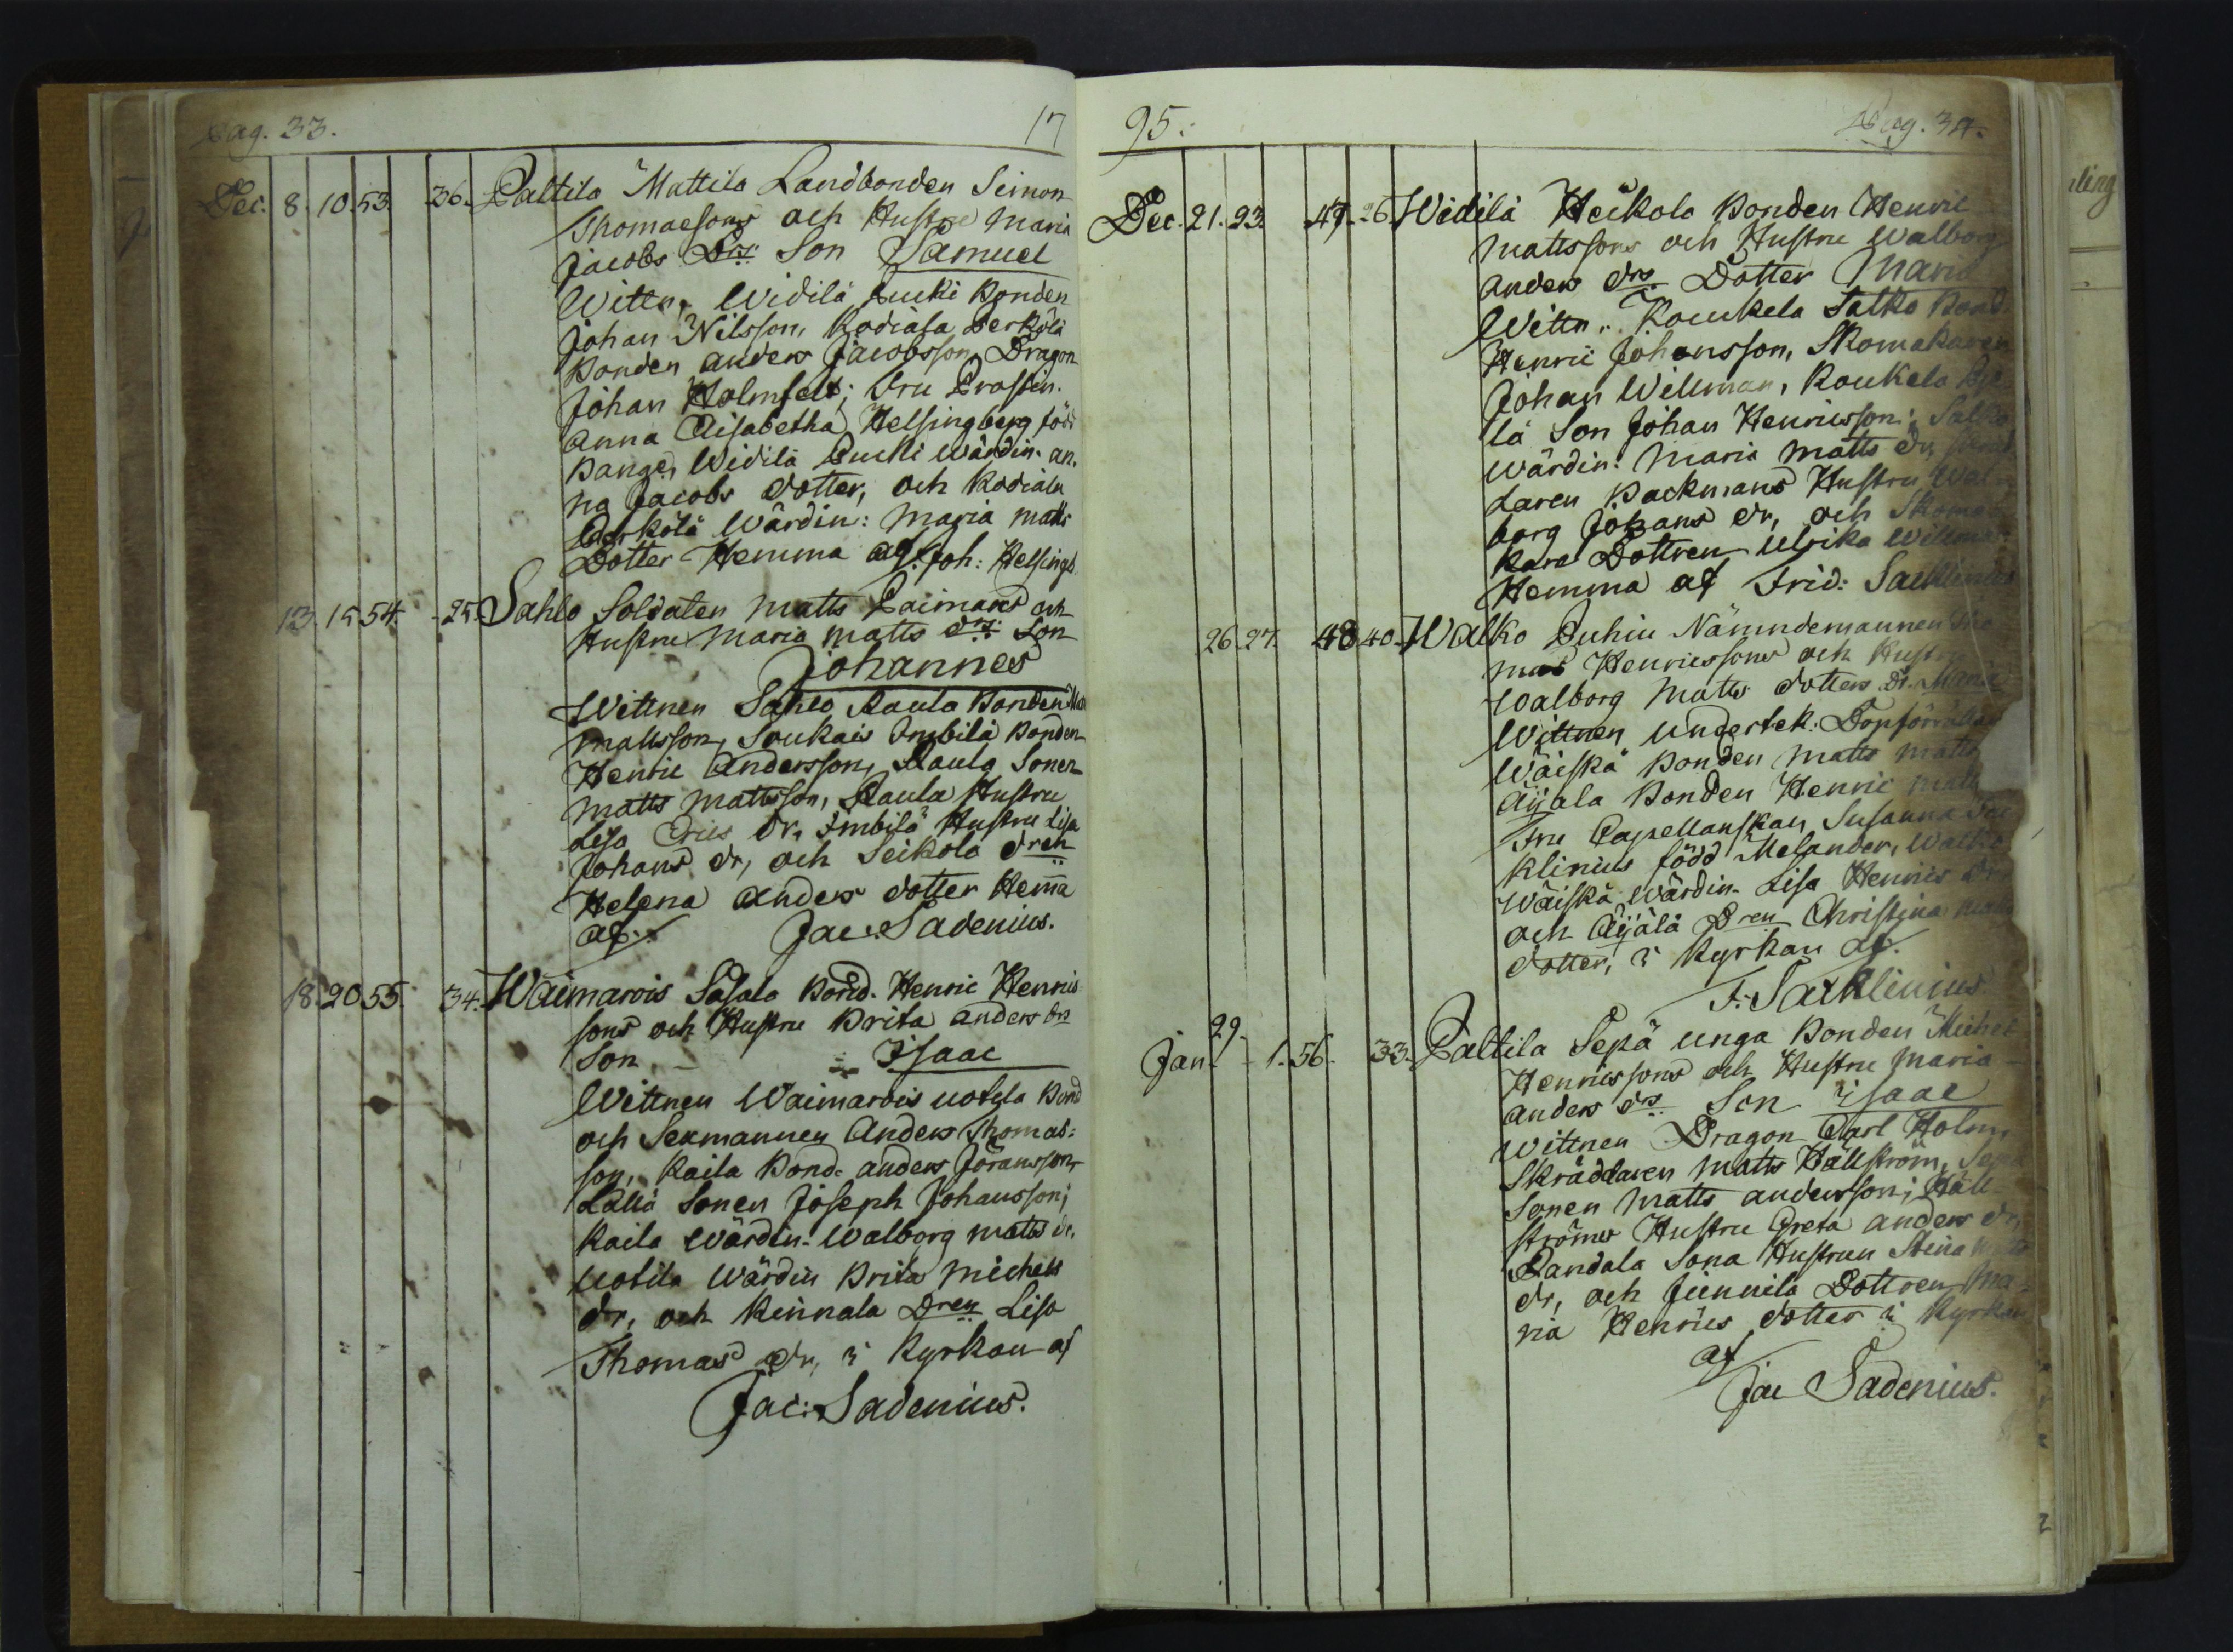 Pag. 33. 17
Dec. 8. 10. 53. 36. Paltila Mattila Landbonden Simon
Thomaesons och Hustru Maria
Jacobs Drs Son Samuel
Wittn. Widilä Pucki Bonden
Johan Nilsson, Kodiala Perkölä
Bonden Anders Jacobsson, Dragon
Johan Holmfelt; Fru Prostin.
Anna Elisabetha Helsingberg född
Bange, Widilä Pucki Wärdin. An,
na Jacobs dotter, och Kodiala
Perkölä Wärdin: Maria Matts
Dotter Hemma af Joh: Helsingb.
13. 15 54. 25. Sahlo Soldaten Matts Paimans och
Hustru Maria Matts drs. Son
Johannes
Wittnen Sahlo Raula Bonden
Mattsson, Soukais Imbilä Bonden
Henric Andersson, Raula Sonen
Matts Mattsson, Raula Hustru
Lisa Erics Dr, Imbilä Hustru Lisa
Johans dr, och Seikola dren
Helena Anders dotter Hem̄a
af. Jac. Sadenius.
18. 20 55. 34. Waimarois Sasala Bond. Henric Henrics
sons och Hustru Brita Anders drs
Son, Isaac
Wittnen Waimarois Uotila Bond
och Sexmannen Anders Thomas:
son, Kaila Bond. Anders Jöransson,
Lällä Sonen Joseph Johansson;
Kaila Wärdin. Walborg Matts dr.
Uotila Wärdin Brita Michels
dr, och Kinnala Dren Lisa
Thomas dr, i Kyrkan af
Jac: Sadenius.
95. Pag. 34.
Dec. 21. 23. 47. 26 Widilä Heikola Bonden Henric
Mattssons och Hustru Walborg
Anders drs. Dotter Maria
Wittn. Koukela Salko Bond.
Henric Johansson, Skomakaren
Johan Willman, Koukela
lä Son Johan Henricsson; Salko
Wärdin: Maria Matts dr,
daren Backmans Hustru Wal-
borg Johans dr, och Skoma-
kare Dottren Ulrika Willman
Hemma af Frid: Sacklinius
26. 27. 48 40. Walko Juhin Nämndemannen Tho
mas Henricssons och Hustru
Walborg Matts dotters Dr. Maria
Wittnen Undertek. Dopförrättare
Wäiskä Bonden Matts Matts
Äijälä Bonden Henric Matts
Fru Capellanskan Susanna Sac
klinius född Melander, Walko
Wäiskä Wärdin. Lisa Henrics Dr
och Äijälä Dren Christina Matts
dotter, i Kyrkan af.
F. Sacklinius
29.
Jan. 1. 56. 33. Paltila Sepä unga Bonden Michel
Henricssons och Hustru Maria
Anders drs. Son Isaac
Wittnen Dragon Carl Holm,
Skräddaren Matts Hällström,
Sonen Matts Andersson; Häll-
ströms Hustru Greta Anders dr,
Pandala Sona Hustrun Stina
dr, och Junnila Dottren Ma-
ria Henrics dotter i Kyrkan
af
Jac Sadenius.